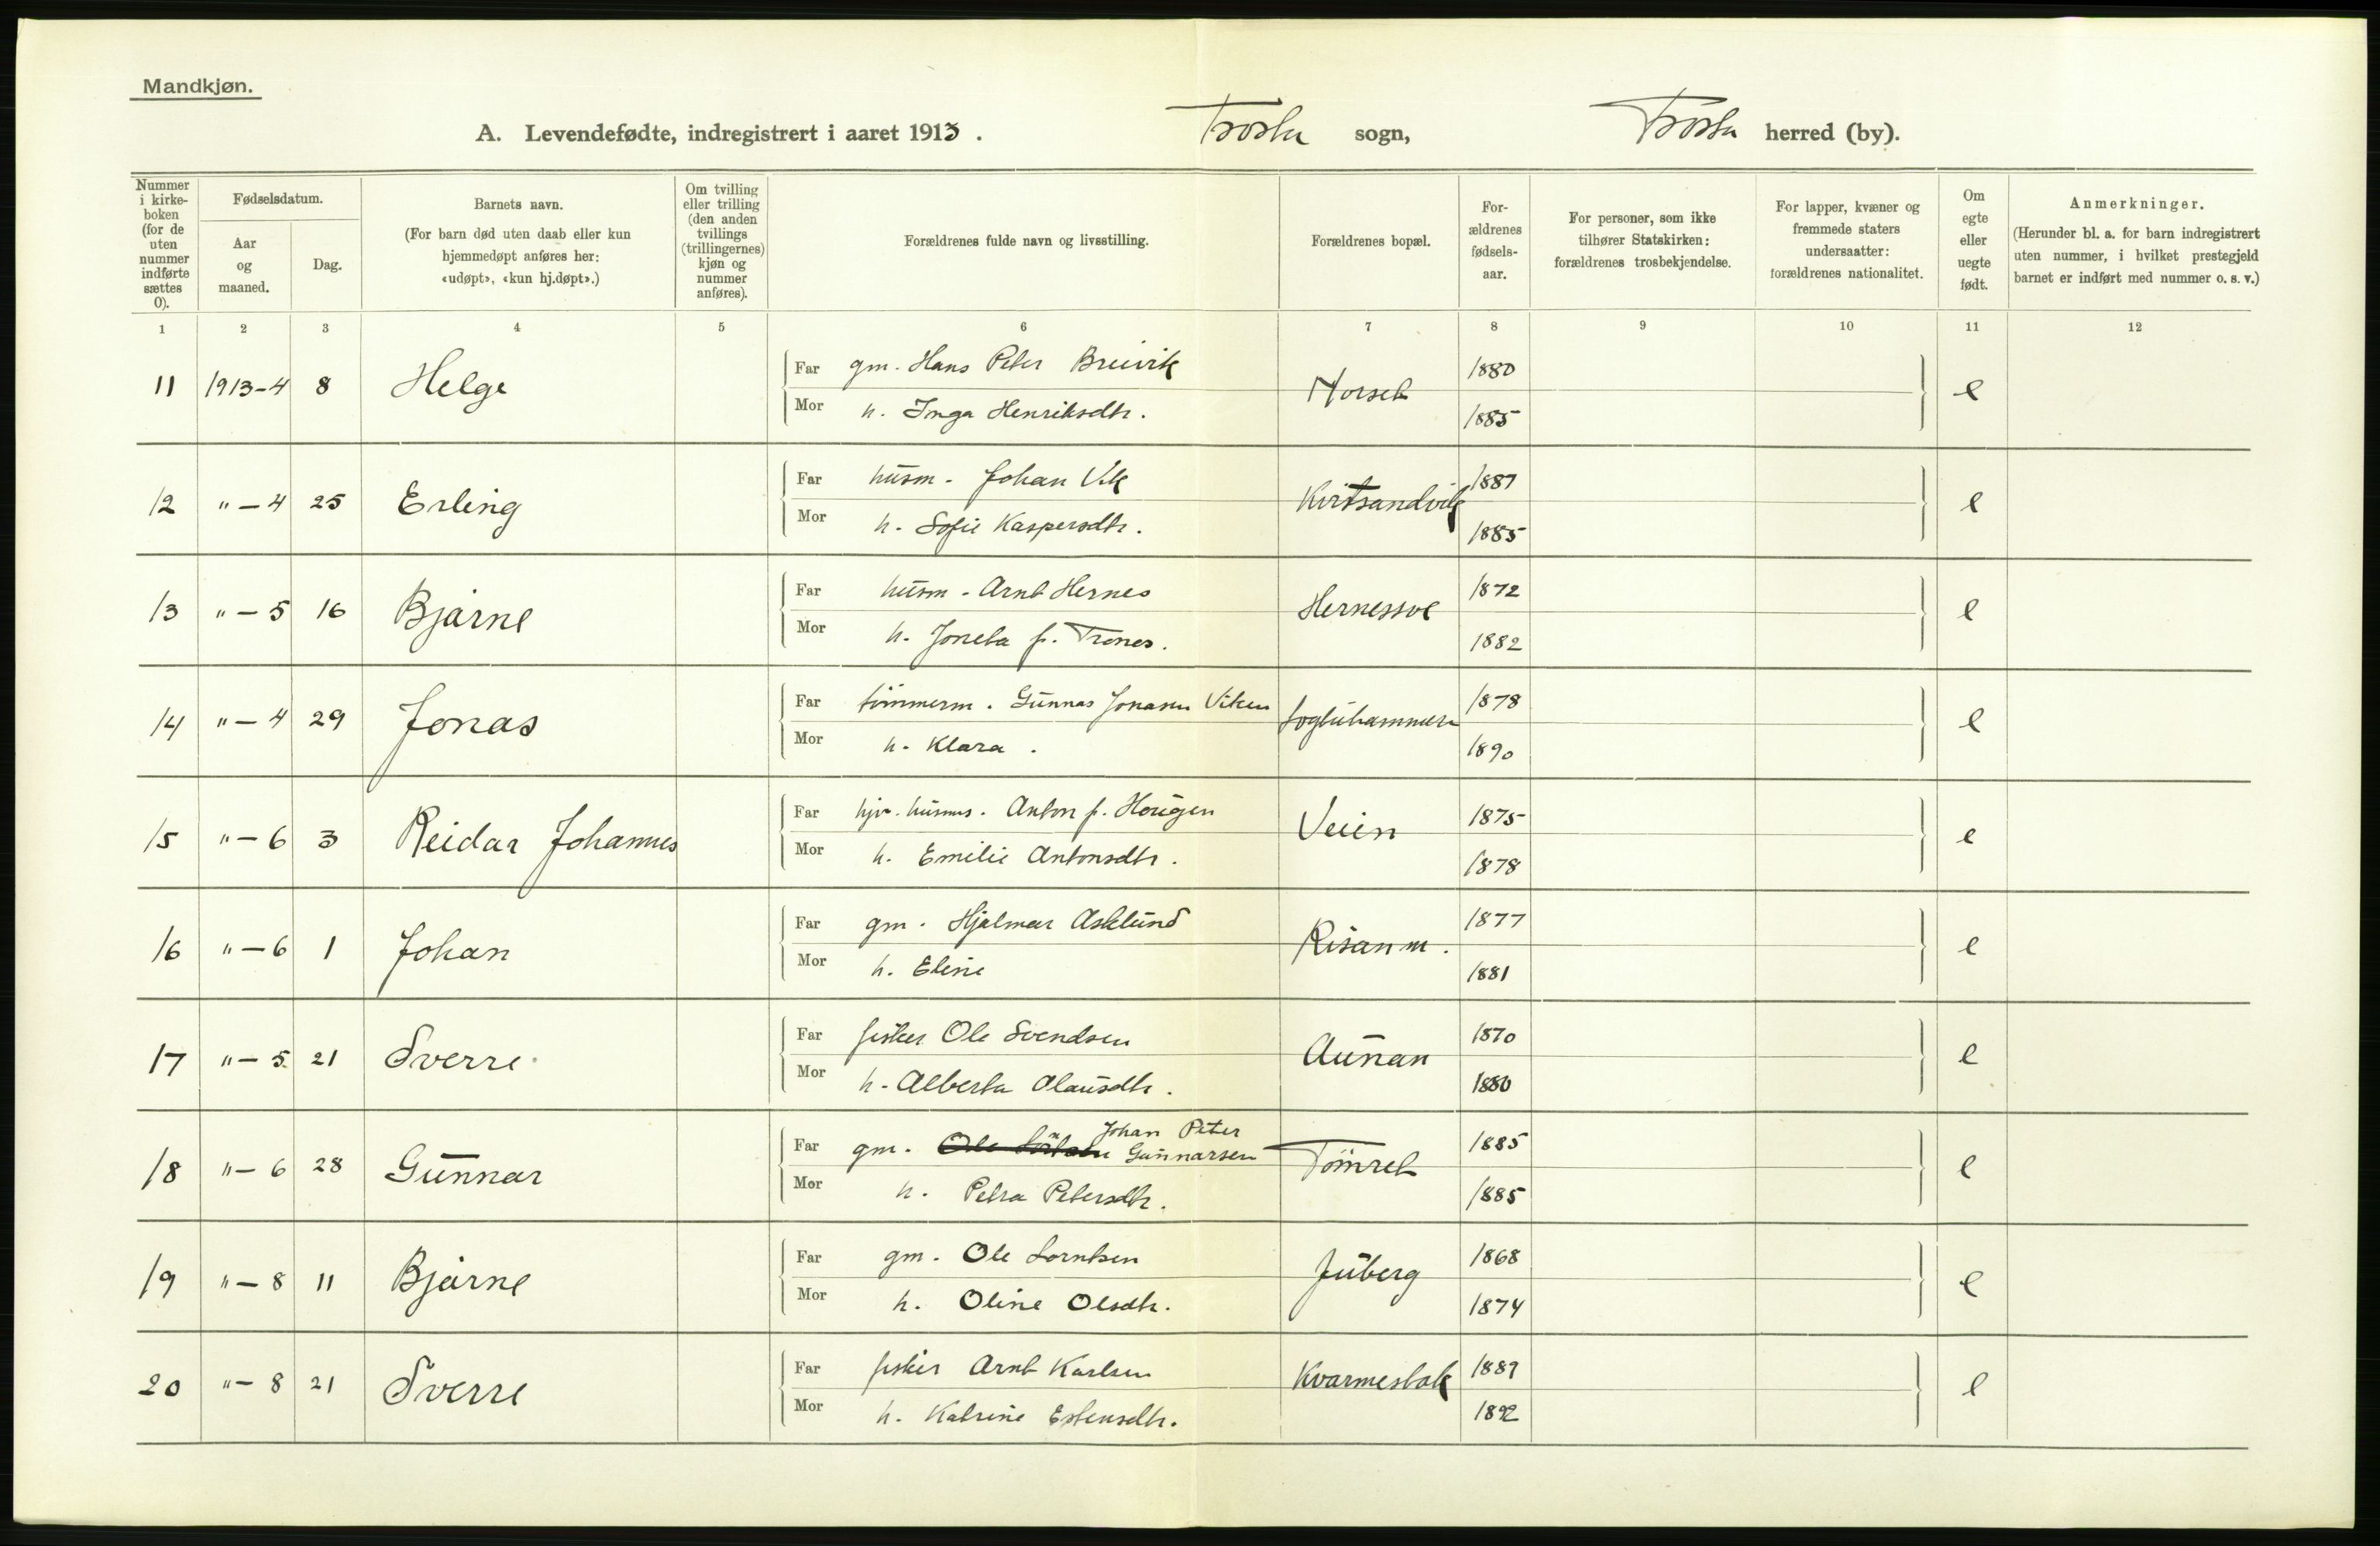 Mandkjøn.
A. Levendefødte, indregistrert i aaret 1913. sogn, herred (by).
Nummer i kirke- boken (for de uten nummer indførte sættes 0).
Fødselsdatum.
Aar og maaned.
Dag.
Barnets navn.
(For barn død uten daab eller kun hjemmedøpt anføres her: «udøpt», «kun hj.døpt».)
Om tvilling eller trilling (den anden tvillings (trillingernes) kjøn og nummer anføres).
Forældrenes fulde navn og livsstilling.
Forældrenes bopæl.
For- ældrenes fødsels- aar.
For personer, som ikke tilhører Statskirken: forældrenes trosbekjendelse.
For lapper, kvæner og fremmede staters undersaatter: forældrenes nationalitet.
Om egte eller uegte født.
Anmerkninger.
(Herunder bl. a. for barn indregistrert uten nummer, i hvilket prestegjeld barnet er indført med nummer o. s. v.)
1 2 3 4 5 6 7 8 9 10 11 12
11 1913-4 8 Helge Far gm. Hans Peter Breivik 1880 e
Mor h. Inga Henriksdtr. 1885
12 " - 4 25 Erling Far husm. Johan Vik Kvitsandvik 1887 e
Mor h. Sofie Kaspersdtr. 1885
13 " - 5 16 Bjarne Far husm. Arnt Hernes 1872 e
Mor h. Joneta f. Trones. 1882
14 " - 4 29 Jonas Far tömmerm. Gunnar Jonasen Viken 1878 e
Mor h. Klara. 1890
15 " - 6 3 Reidar Johannes Far Anton f. Hougen Veien 1875 e
Mor h. Emilie Antonsdtr. 1878
16 " - 6 1 Johan Far gm. Hjalmar Asklund Risan m. 1877 e
Mor h. Eline 1881
17 " - 5 21 Sverre Far fisker Ole Svendsen Aunan 1870 e
Mor h. Alberta Olausdtr. 1880
18 " - 6 28 Gunnar Far gm. Johan Peter Gunnarsen 1885 e
Mor h. Petra Petersdtr. 1885
19 " - 8 11 Bjarne Far gm. Ole Lorntsen Juberg 1868 e
Mor h. Oline Olsdtr. 1874
20 " - 8 21 Sverre Far fisker Arnt Karlsen 1889 e
Mor h. Katrine Estensdtr. 1892